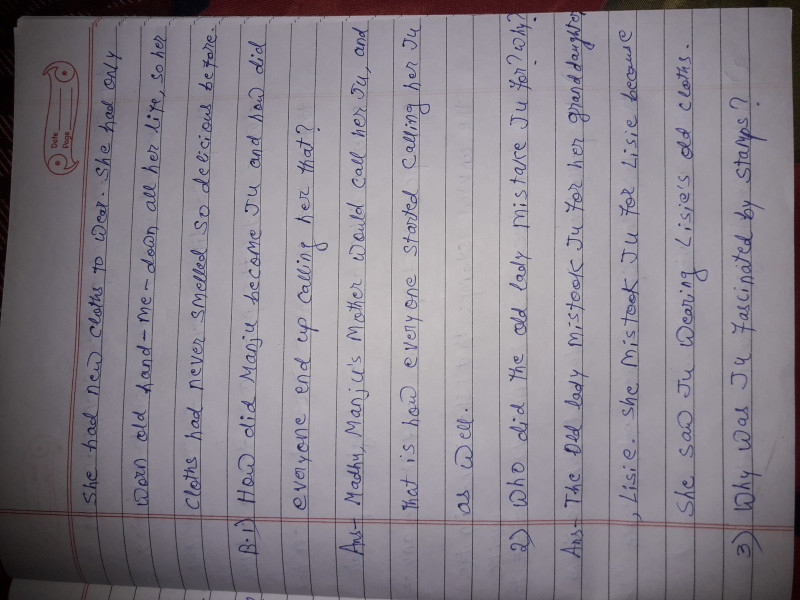 Date
Page
She had new cloths to wear. She had only
worn old hand-me-down all her life, so her
cloths had never smelled so delicious before.
B.1) How did Manju become Ju and how did
everyone end up calling her that?
Ans- Madhu, Manju's Mother would call her Ju, and
that is how everyone started calling her Ju
as well.
2) Who did the old lady mistake Ju for? Why?
Ans- The Old lady mistook Ju for her granddaughter
, Lisie. She mistook Ju for Lisie because
She saw Ju wearing Lisie's old cloths.
3) Why was Ju fascinated by stamps?